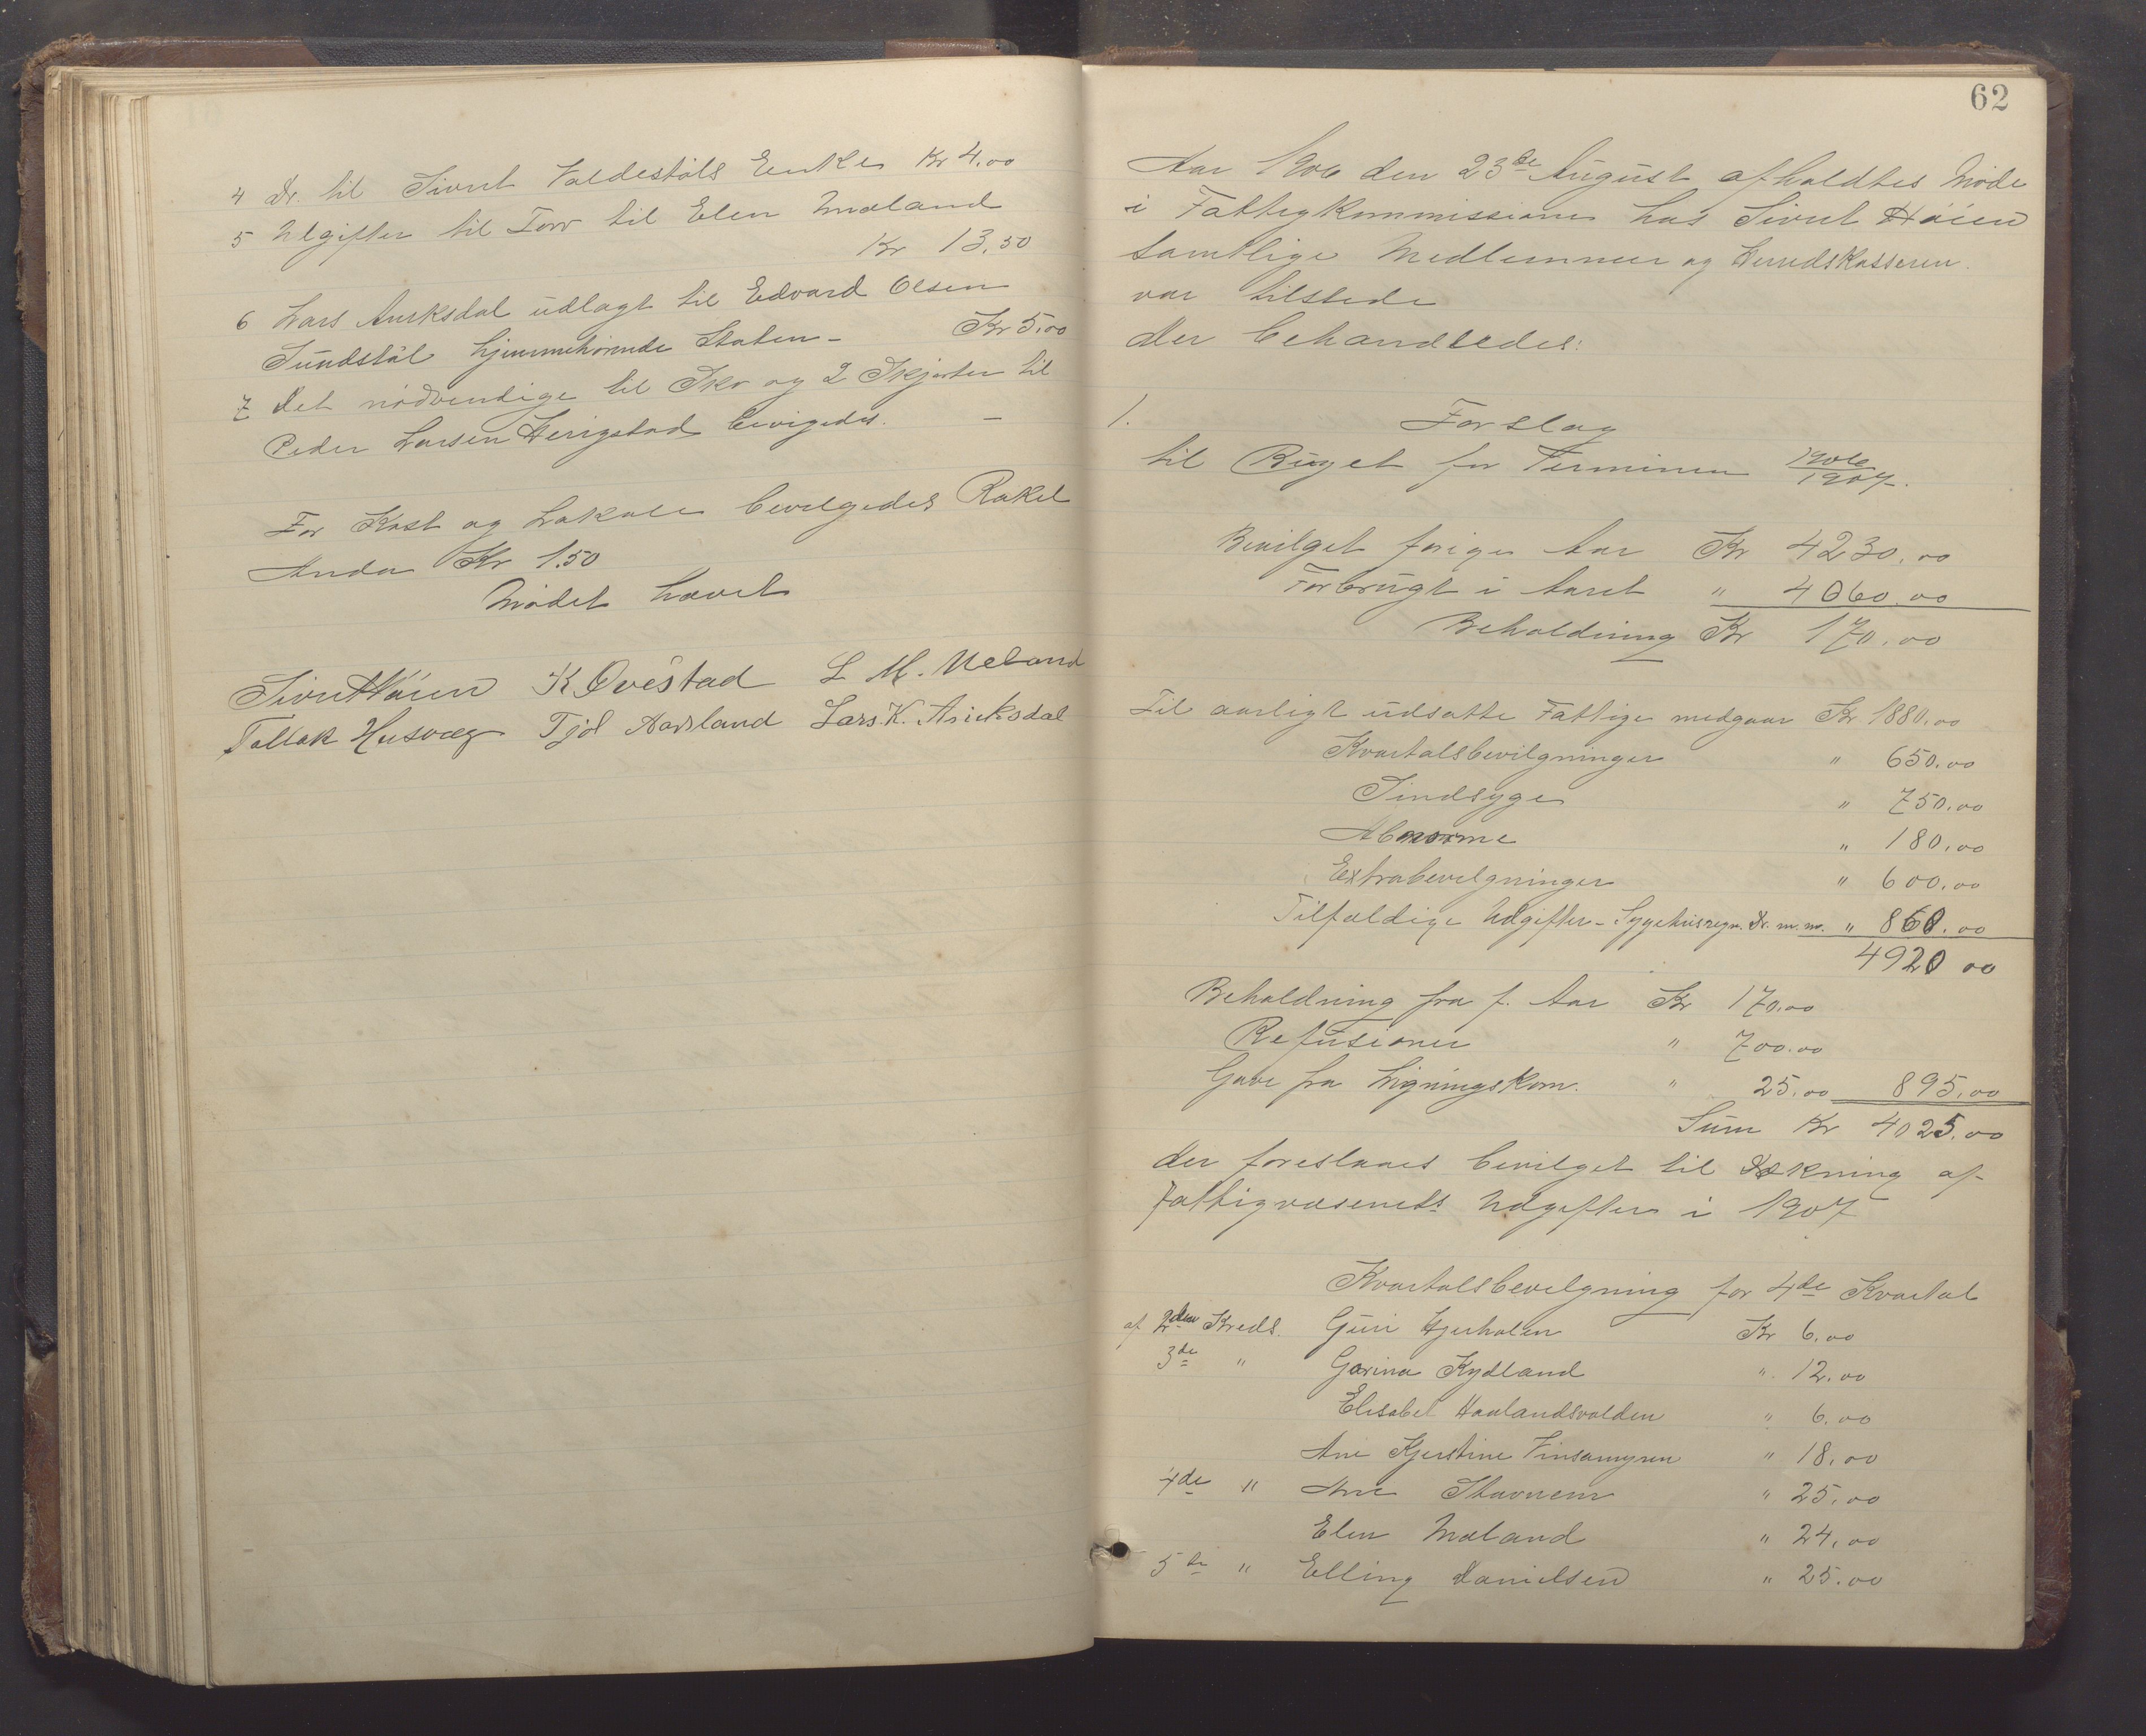 4 Dr. til Sivert Valdestøls Enke Kr 4.00
5 Udgifter til Torv til Elen Mæland
Kr 13.50
6 Lars Aurksdal udlagt til Edvard Olsen
Sundstøl hjemmehørende Staten - Kr 5.00
7 Det nødvendige til Sko og 2 Skjorter til
Peder Larsen Herigstad bevigedes. -
For Kost og Lokale bevilgedes Rakel
Anda Kr 1.50
Mødet hævet
Sivert Høien K Qvêstad L M. Ueland
Tallak Husvæg Tjøl Aarsland Lars K. Auksdal
62
Aar 1906 den 23de August afholdtes Møde
i Fattigkommissionen hos Sivert Høien
samtlige Medlemmer og Herredskasseren
var tilstede
der behandledes:
1. Forslag
til Buget for Terminen 1906/1907.
Bevilget forige Aar Kr 4230.00
Forbrugt i Aaret " 4060.00
Beholdning Kr 170.00
Til aarligt udsatte Fattige medgaar Kr 1880.00
Kvartalsbevilgninger " 650.00
Sindsyge " 750.00
Abnorme " 180.00
Extrabevilgninger " 600.00
Tilfældige Udgifter - Sygehusregn. Dr. m.m. " 860.00
4920 00
Beholdning fra f. Aar Kr 170.00
Refusioner " 700.00
Gave fra Ligningskom. " 25.00 895.00
Sum Kr 4025.00
der foreslaaes bevilget til Dækning af
Fattigvæsenets Udgifter i 1907
Kvartalsbevilgning for 4de Kvartal
af 2den Kreds. Guri Hjerholen Kr 6.00
3de " Garina Kydland " 12.00
Elisabet Haalandsvolden " 6.00
Ane Kjerstine Finsamyren " 18.00
4de " Ane Stavnem " 25.00
Elen Mæland " 24.00
5te " Elling Danielsen " 25.00